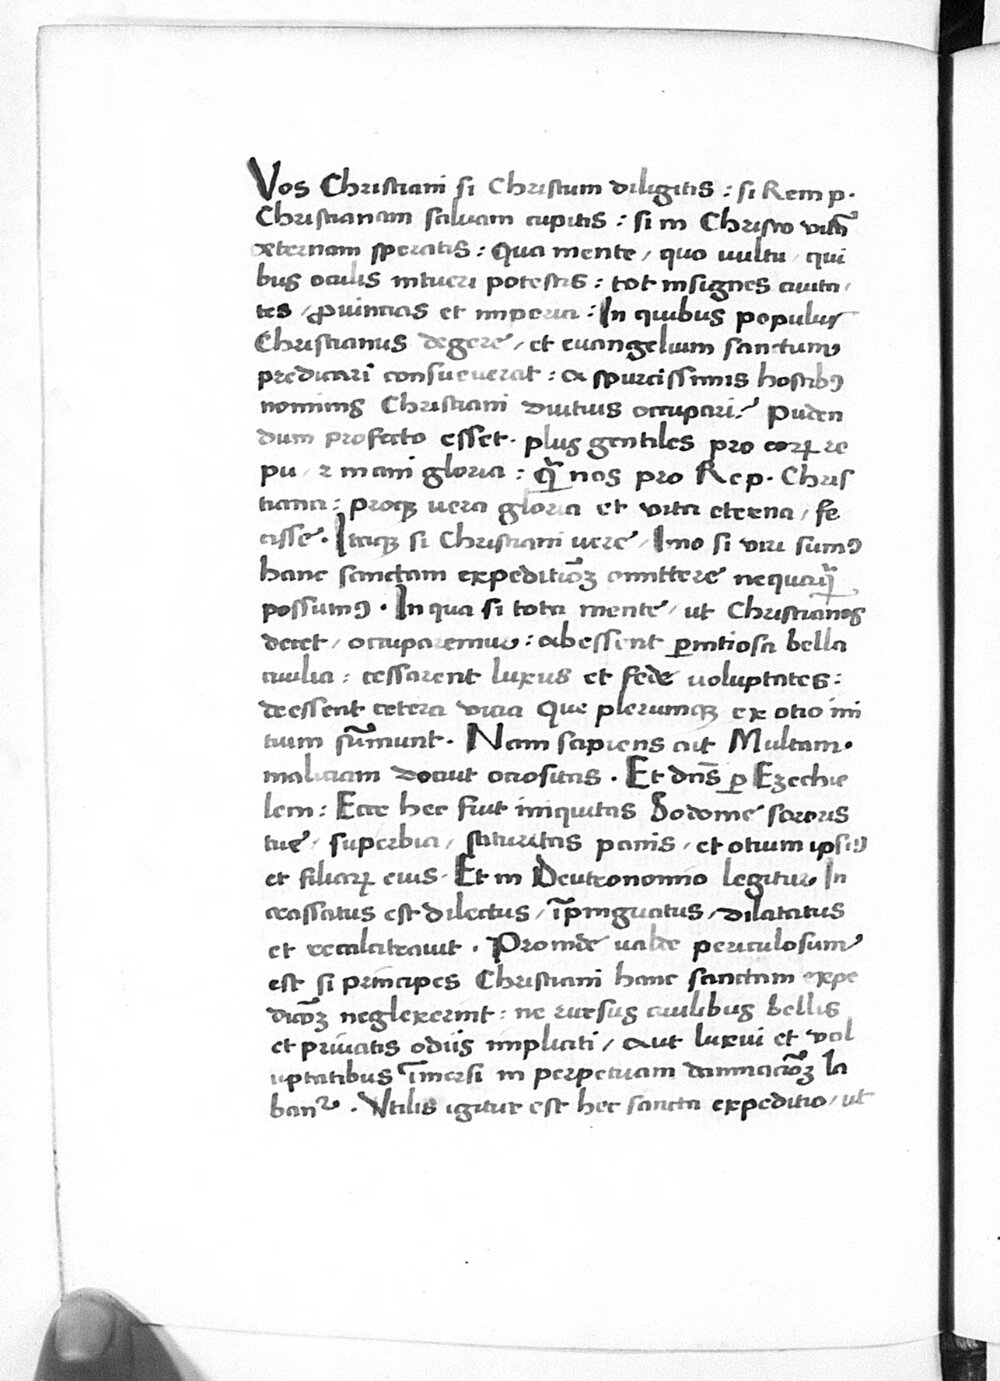 Vos Christiani si Christum diligitis : si Rem p.
Christianam saluam cupitis : si in Christo vitã
æternam speratis : Qua mente / quo uultu / qui
bus oculis intueri potestis : tot insignes ciuita /
tes / ꝓuincias et imperia : In quibus populus
Christianus degere / et euangelium sanctum
predicari consueuerat : a spurcissimis hostibꝫ
nominis Christiani diutius occupari ? Puden
dum profecto esset . plus gentiles pro eoꝝ re
pu / et inani gloria : q̃ nos pro Rep . Chris
tiana : proqꝫ uera gloria et vita eterna / fe
cisse . Itaqꝫ si Christiani uere / Imo si viri sumꝰ
hanc sanctam expeditiõꝫ omittere nequaq̃
possumꝰ . In qua si tota mente / ut Christianos
decet / occuparemur : abessent ꝑnitiosa bella
ciuilia : cessarent luxus et fede uoluptates :
deessent cetera vicia Que plerumqꝫ ex otio ini
tium sũmunt . Nam sapiens ait Multam .
maliciam docuit ociositas . Et dñs ꝑ Ezechie
lem : Ecce hec fuit iniquitas Sodome sororis
tue / superbia / saturitas panis / et otium ipsiꝰ
et filiaꝝ eius . Et in Deutronomio legitur In
crassatus est dilectus / ĩpinguatus / dilatatus
et recalcitrauit . Proinde ualde periculosum
est si principes Christiani hanc sanctam expe
dicõꝫ neglexerint : ne rursus ciuilibus bellis
et priuatis odiis impliciti / aut luxui et vol
uptatibus ĩmersi in perpetuam damnaciõꝫ la
banꝉ . Vtilis igitur est hec sancta expeditio / ut